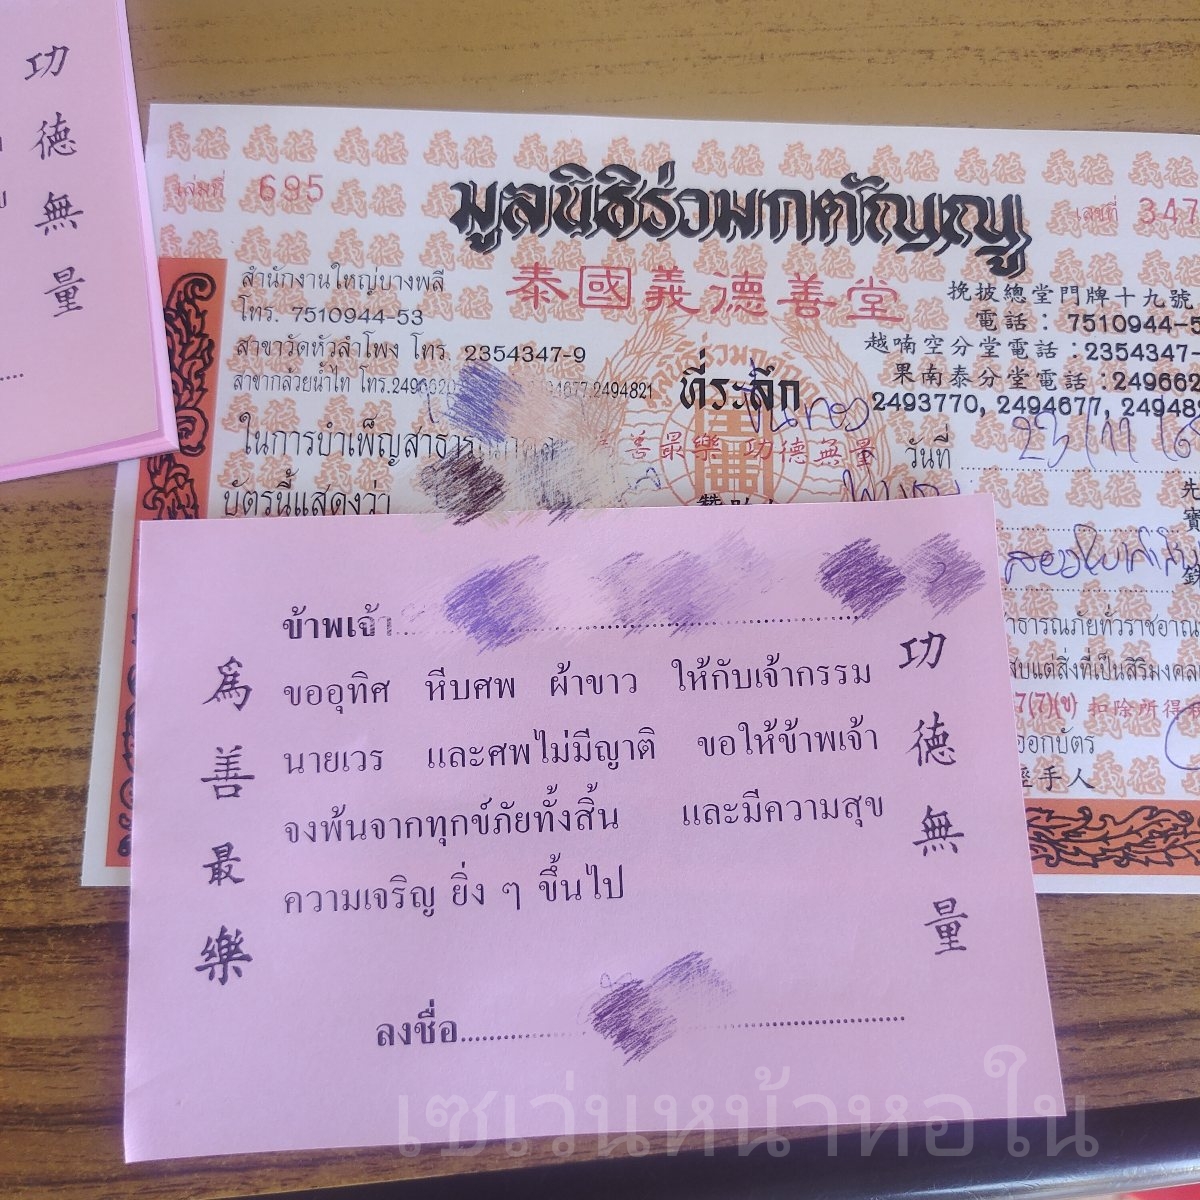 功德無量
เล่มที่ 695
มูลนิธิร่วมกตัญญู
เลขที่ 347
泰國義德善堂
สำนักงานใหญ่บางพลี
โทร. 7510944-53
สาขาวัดหัวลำโพง โทร. 2354347-9
สาขากล้วยน้ำไท โทร.2496620
94677,2494821
ที่ระลึก
挽披總堂門牌十九號
電話：7510944-5
越喃空分堂電話：2354347-
果南泰分堂電話：249662
2493770, 2494677, 24948
ในการบำเพ็ญสาธารณ
善最樂 功德無量
วันที่ 23/11/6
บัตรนี้แสดงว่า
สองใบ
าธารณภัยทั่วราชอาณา
สบแต่สิ่งที่เป็นสิริมงคล
7(7)(ข) 扣除所得
ออกบัตร
手人
ข้าพเจ้า
ขออุทิศ หีบศพ ผ้าขาว ให้กับเจ้ากรรม
นายเวร และศพไม่มีญาติ ขอให้ข้าพเจ้า
จงพ้นจากทุกข์ภัยทั้งสิ้น และมีความสุข
ความเจริญ ยิ่ง ๆ ขึ้นไป
ลงชื่อ
為善最樂
功德無量
เซเว่นหน้าหอใน